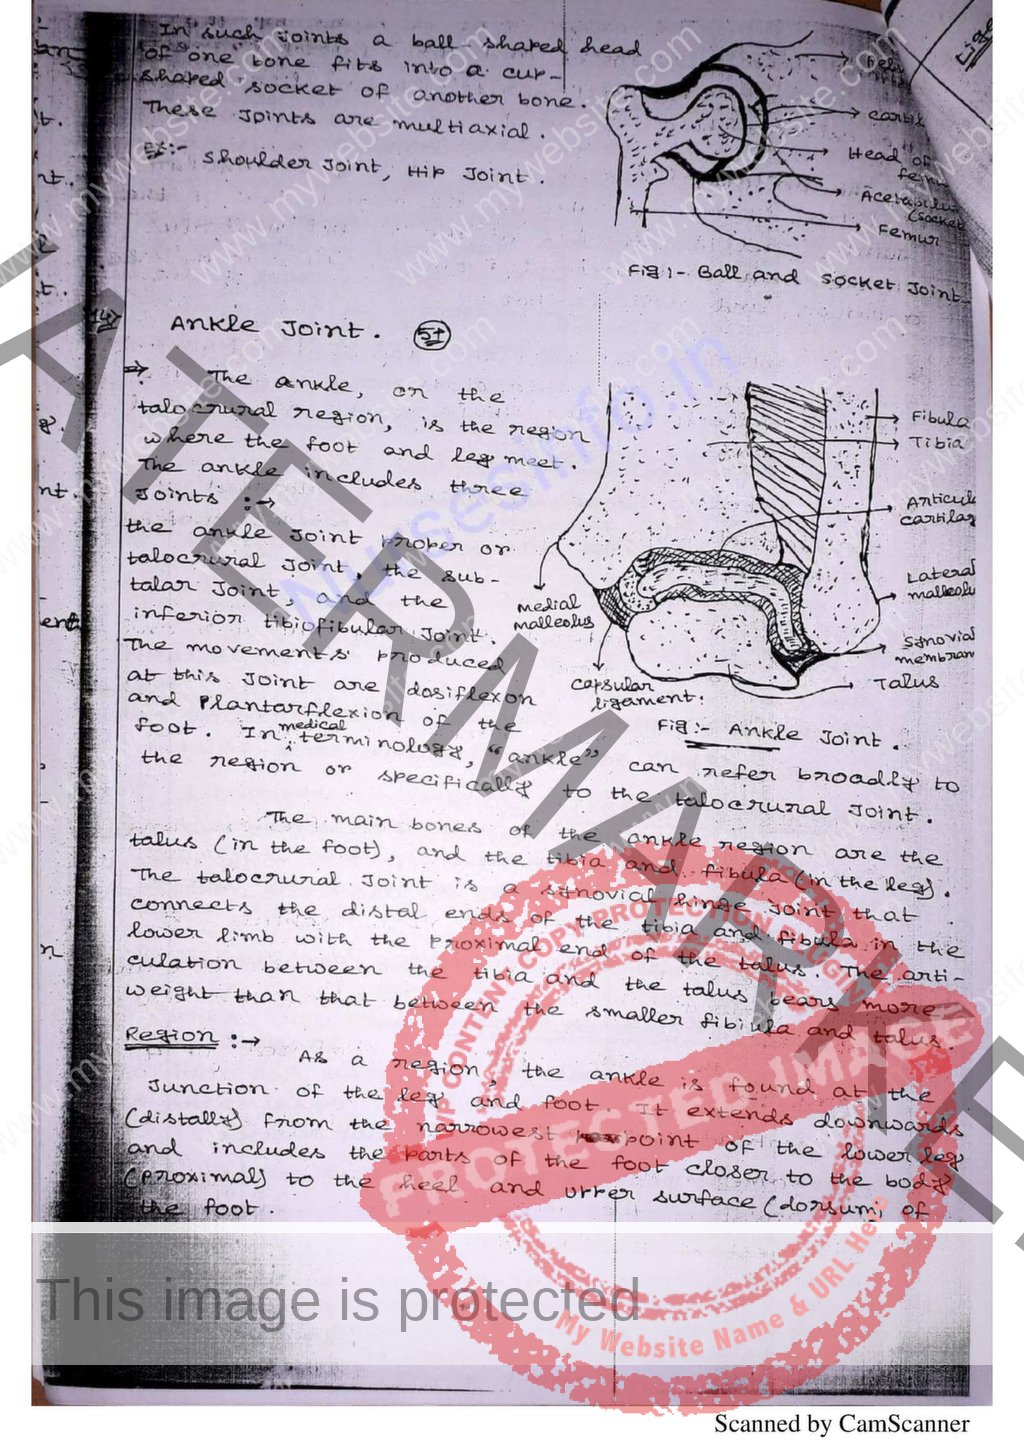 In such joints a ball shaped head
of one bone fits into a cup-
shaped socket of another bone.
These joints are multiaxial.
Ex:- Shoulder Joint, Hip Joint.
Head of
Acetabulum
(socket
Femur
Fig:- Ball and Socket Joint
Ankle Joint.
The ankle, or the
talocrural region, is the region
where the foot and leg meet.
The ankle includes three
Joints :→
the ankle Joint proper or
talocrural Joint, the sub-
talar Joint, and the
inferior tibiofibular Joint.
The movements produced
at this Joint are dosiflexon
and Plantarflexion of the
foot. In medical terminology, "ankle" can refer broadly to
the region or specifically to the talocrural Joint.
Fibula
Tibia
Articul
cartilag
Lateral
malleolu
Synovial
membran
Talus
medial
malleolus
capsular
ligament.
Fig:- Ankle Joint.
The main bones of the ankle region are the
talus (in the foot), and the tibia and fibula (in the leg).
The talocrural Joint is a synovial hinge Joint that
connects the distal ends of the tibia and fibula in the
lower limb with the proximal end of the talus. The arti-
culation between the tibia and the talus bears more
weight than that between the smaller fibiula and talus
Region :→
As a region, the ankle is found at the
Junction of the leg and foot It extends downwards
(distally) from the narrowest point of the lower leg
and includes the parts of the foot closer to the body
(proximal) to the heel and upper surface (dorsum) of
the foot.
www.mywebsite.com
Nursesinfo.in
WP CONTENT COPY PROTECTION PLUGIN
PROTECTED IMAGE
My Website Name & URL Here
This image is protected
Scanned by CamScanner